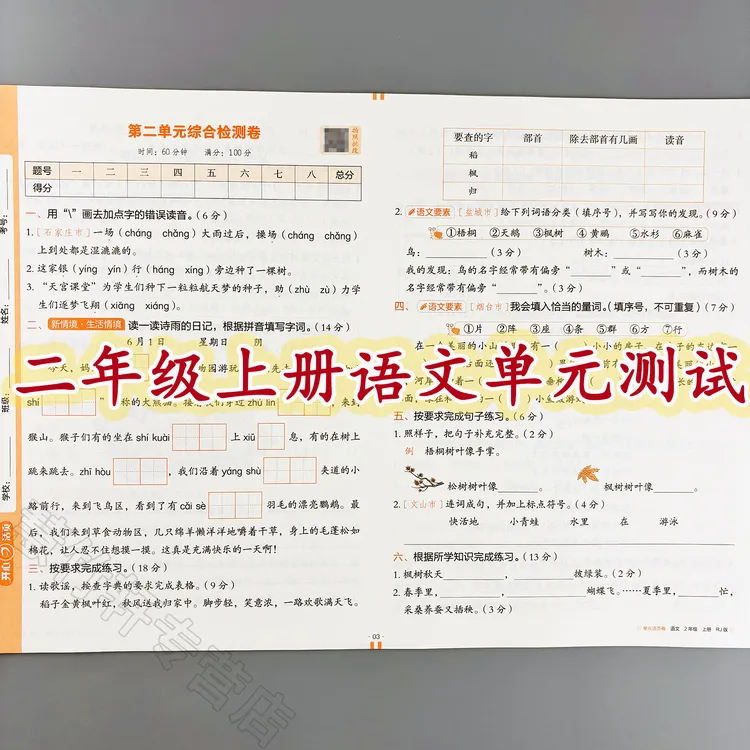 第二单元综合检测卷
时间：60分钟 满分：100分
题号 一 二 三 四 五 六 七 八 总分
得分
考号：
姓名：
班级：
学校：
开心 活页
一、用“\”画去加点字的错误读音。(6分)
1.[石家庄市]一场(cháng chǎng)大雨过后，操场(cháng chǎng)
上到处都是湿漉漉的。
2.这家银(yíng yín)行(háng xíng)旁边种了一棵树。
3.“天宫课堂”为学生们种下一粒粒航天梦的种子，助(zhù zù)力学
生们逐梦飞翔(xiāng xiáng)。
二、新情境·生活情境 读一读诗雨的日记，根据拼音填写字词。(14分)
6月1日 星期日 阴
二年级上册语文单元测试
猴山。猴子们有的坐在shí kuài 上xiū 息，有的在树上
跳来跳去。zhī hòu ，我们沿着yáng shù 夹道的小
路前行，来到飞鸟区，看到了有cǎi sè 羽毛的漂亮鹦鹉。最
后，我们来到草食动物区，几只绵羊懒洋洋地嚼着干草，身上的毛蓬松如
棉花，让人忍不住想摸一摸。这真是充满快乐的一天啊！
三、按要求完成练习。(18分)
1.读歌谣，按查字典的要求完成表格。(9分)
稻子金黄枫叶红，秋风送我归家中。脚步轻，笑意浓，一路欢歌满天飞。
03
要查的字 部首 除去部首有几画 读音
稻
枫
归
2.语文要素 [盐城市]给下列词语分类(填序号)，并写写你的发现。(9分)
①梧桐 ②天鹅 ③枫树 ④黄鹂 ⑤水杉 ⑥麻雀
鸟：(3分) 树木：(3分)
我的发现：鸟的名字经常带有偏旁“ ”或“ ”，而树木的
名字经常带有偏旁“ ”。(3分)
四、语文要素 [烟台市]我会填入恰当的量词。(填序号，不可重复)(7分)
①片 ②阵 ③座 ④条 ⑤群 ⑥方 ⑦行
五、按要求完成句子练习。(6分)
1.照样子，把句子补充完整。(2分)
例 梧桐树叶像手掌。
松树树叶像 。 枫树树叶像 。
2.[文山市]连词成句，并加上标点符号。(4分)
快活地 小青蛙 水里 在 游泳
六、根据所学知识完成练习。(13分)
1.枫树秋天 ， 披绿装。(2分)
2.春季里， ， 蝴蝶飞。……夏季里， 忙，
采桑养蚕又插秧。(3分)
语文 2年级 上册 RJ版